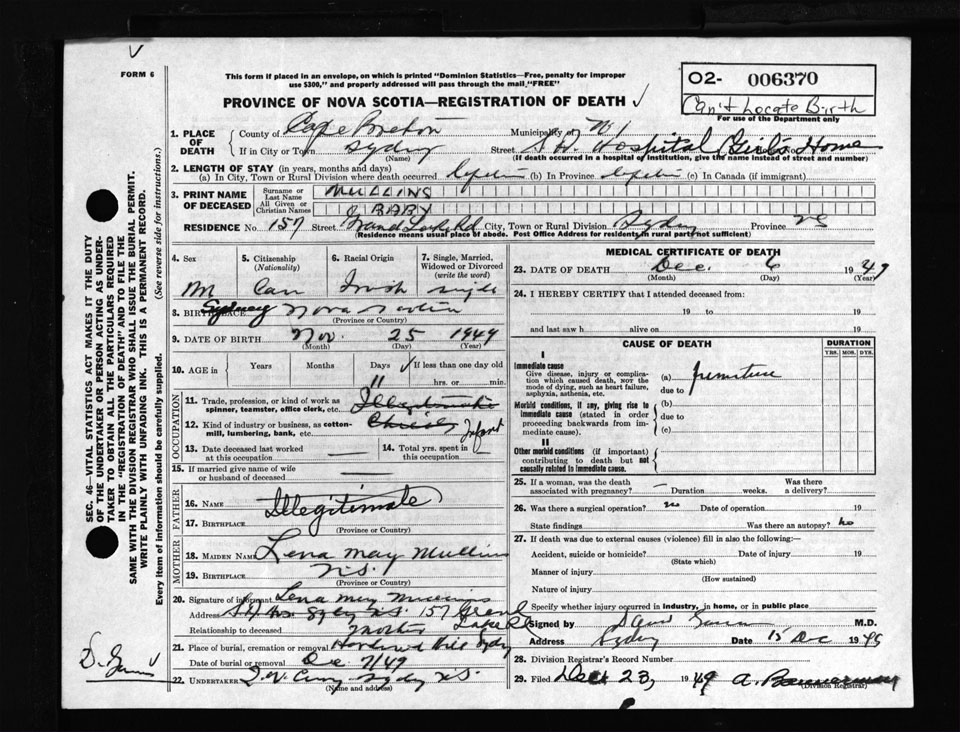 FORM 6
This form if placed in an envelope, on which is printed "Dominion Statistics—Free, penalty for improper
use $300," and properly addressed will pass through the mail, "FREE"
O2- 006370
Can't Locate Birth
For use of the Department only
PROVINCE OF NOVA SCOTIA—REGISTRATION OF DEATH
1. PLACE OF DEATH { County of Cape Breton Municipality of
If in City or Town Sydney Street Hospital Girls Home
(Name) (If death occurred in a hospital or institution, give the name instead of street and number)
2. LENGTH OF STAY (in years, months and days)
(a) In City, Town or Rural Division where death occurred (b) In Province (c) In Canada (if immigrant)
3. PRINT NAME OF DECEASED { Surname or Last Name MULLINS
All Given or Christian Names BABY
RESIDENCE No. 157 Street Grand Lake Rd City, Town or Rural Division Sydney Province NS
(Residence means usual place of abode. Post Office Address for residents in rural parts not sufficient)
4. Sex M
5. Citizenship (Nationality) Can
6. Racial Origin Irish
7. Single, Married, Widowed or Divorced (write the word) single
8. BIRTHPLACE Sydney Nova Scotia
(Province or Country)
9. DATE OF BIRTH Nov. 25 1949
(Month) (Day) (Year)
10. AGE in Years Months Days 11 If less than one day old
hrs. or min.
OCCUPATION
11. Trade, profession, or kind of work as spinner, teamster, office clerk, etc. Illegitimate
12. Kind of industry or business, as cotton-mill, lumbering, bank, etc. Infant
13. Date deceased last worked at this occupation
14. Total yrs. spent in this occupation
15. If married give name of wife or husband of deceased
FATHER
16. NAME Illegitimate
17. BIRTHPLACE
(Province or Country)
MOTHER
18. MAIDEN NAME Lena May Mullins
19. BIRTHPLACE N.S.
(Province or Country)
20. Signature of informant Lena May Mullins
Address Sydney N.S. 157 Grand Lake Rd
Relationship to deceased Mother
21. Place of burial, cremation or removal Hill Sydney
Date of burial or removal Dec 7/49
22. UNDERTAKER Sydney N.S.
(Name and address)
MEDICAL CERTIFICATE OF DEATH
23. DATE OF DEATH Dec. 6 1949
(Month) (Day) (Year)
24. I HEREBY CERTIFY that I attended deceased from:
19 to 19
and last saw h alive on 19
CAUSE OF DEATH
DURATION
YRS. MOS. DYS.
I
Immediate cause
Give disease, injury or complication which caused death, NOT the mode of dying, such as heart failure, asphyxia, asthenia, etc.
(a) premature
due to
Morbid conditions, if any, giving rise to immediate cause (stated in order proceeding backwards from immediate cause).
(b)
due to
(c)
II
Other morbid conditions (if important) contributing to death but not causally related to immediate cause.
25. If a woman, was the death associated with pregnancy? — Duration weeks. Was there a delivery?
26. Was there a surgical operation? no Date of operation 19
State findings Was there an autopsy? no
27. If death was due to external causes (violence) fill in also the following:—
Accident, suicide or homicide? Date of injury 19
(State which)
Manner of injury
(How sustained)
Nature of injury
Specify whether injury occurred in industry, in home, or in public place
Signed by M.D.
Address Sydney Date 15 Dec 1949
28. Division Registrar's Record Number
29. Filed Dec 23, 1949 A. Bannerman
(Division Registrar)
SEC. 46—VITAL STATISTICS ACT MAKES IT THE DUTY
OF THE UNDERTAKER OR PERSON ACTING AS UNDER-
TAKER TO OBTAIN ALL THE PARTICULARS REQUIRED
IN THE "REGISTRATION OF DEATH" AND TO FILE THE
SAME WITH THE DIVISION REGISTRAR WHO SHALL ISSUE THE BURIAL PERMIT.
WRITE PLAINLY WITH UNFADING INK. THIS IS A PERMANENT RECORD.
Every item of information should be carefully supplied. (See reverse side for instructions.)